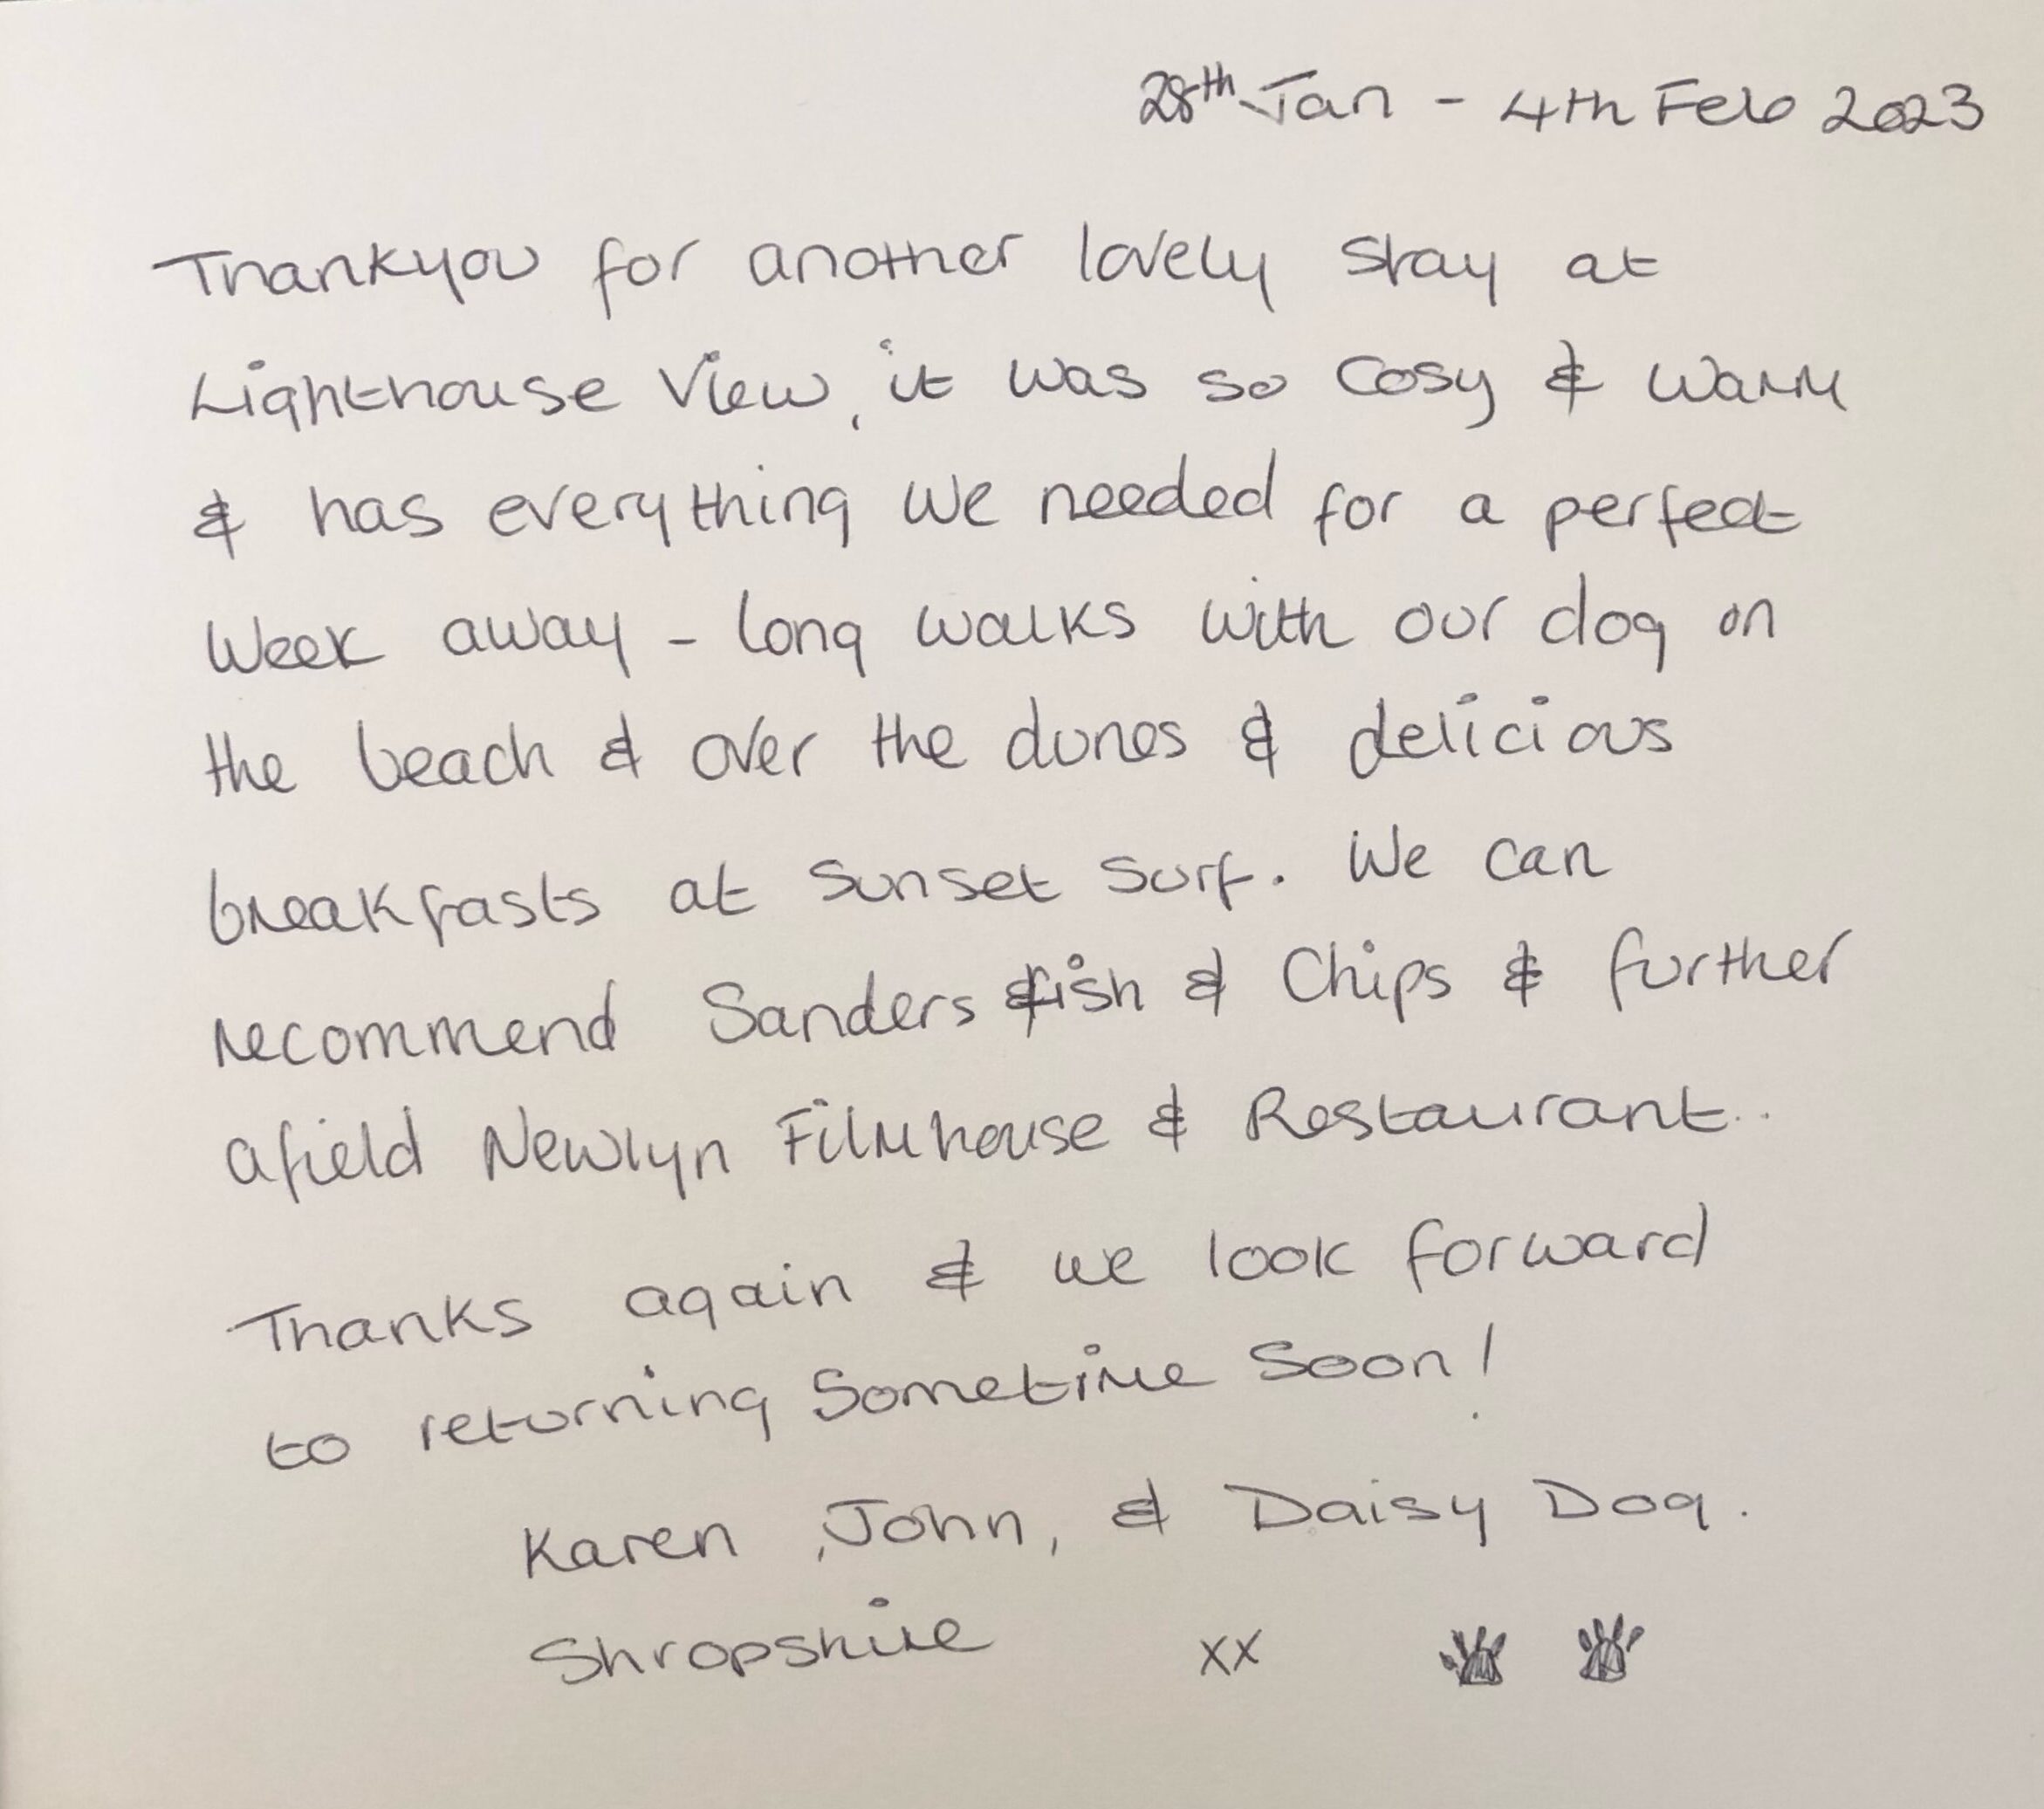 28th Jan - 4th Feb 2023
Thankyou for another lovely stay at
Lighthouse View, it was so cosy & warm
& has everything we needed for a perfect
week away - long walks with our dog on
the beach & over the dunes & delicious
breakfasts at Sunset Surf. We can
recommend Sanders fish & Chips & further
afield Newlyn Filmhouse & Restaurant..
Thanks again & we look forward
to returning sometime soon!
Karen, John, & Daisy Dog.
Shropshire xx